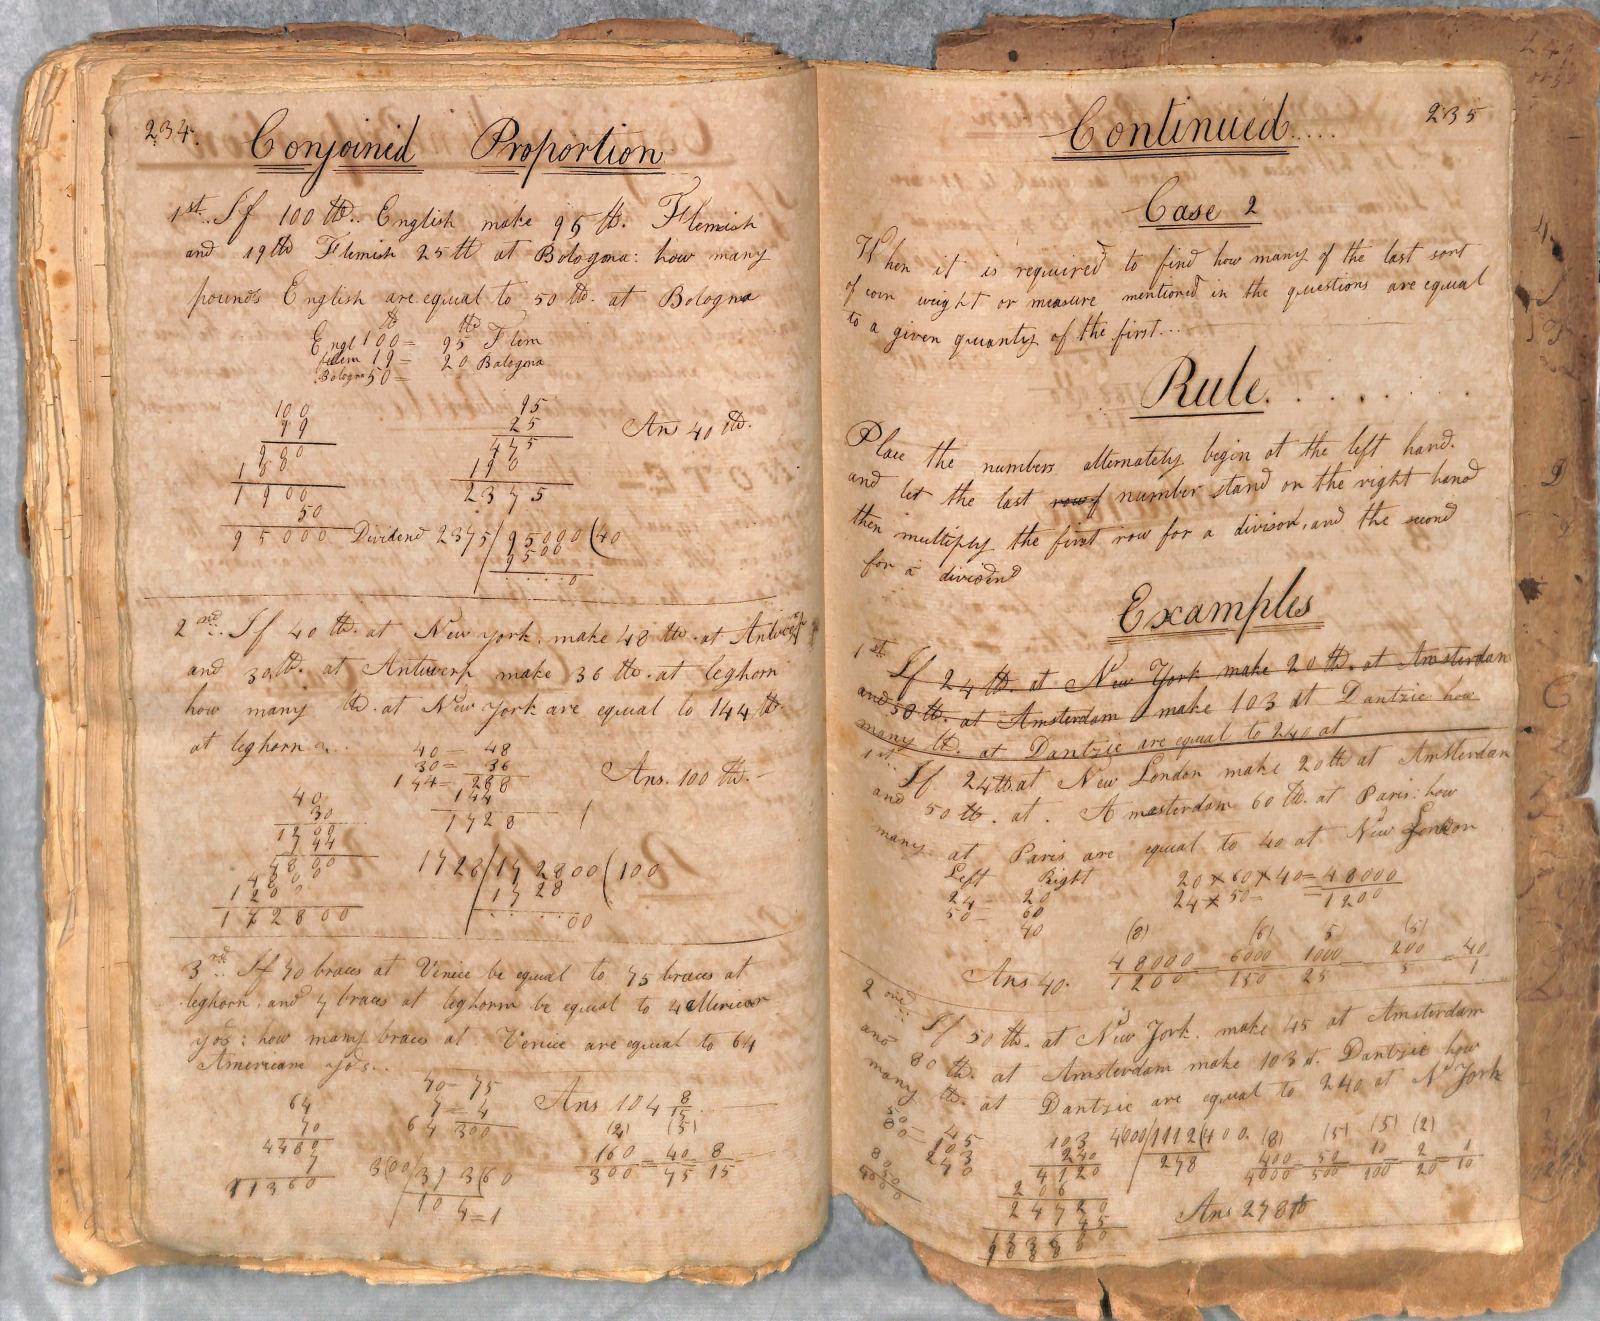 234.
Conjoined Proportion
1st.. If 100 ℔.. English make 95 ℔. Flemish
and 19℔ Flemish 25℔ at Bologna: how many
pounds English are equal to 50 ℔. at Bologna
℔ ℔
Engl 100 = 95 Flem
flem 19 = 20 Balogna
Bologna 50 =
100 95
25 Ans 40 ℔.
475
190
1900 2375
50
95000 Dividend 2375/95000(40
9500
....0
2nd.. If 40 ℔. at New york. make 48 ℔. at Antwerp
and 30℔. at Antwerp make 36 ℔. at leghorn
how many ℔. at New York are equal to 144 ℔.
at leghorn
40 = 48
30 = 36
144 = 288 Ans. 100 ℔.
40 144
30 1728
1200
144
4800
4800
1200 1728/172800(100
172800 1728
00
3rd.. If 70 braces at Venice be equal to 75 braces at
leghorn, and 7 braces at leghorn be equal to 4 American
yds: how many braces at Venice are equal to 64
American yds..
70 - 75
64 7 = 4 Ans 104 8/15
70 64 300 (2) (5)
4480 160/300 = 40/75 = 8/15
7 3(00/313(60
31360 104=1
Continued.... 235
Case 2
When it is required to find how many of the last sort
of coin weight or measure mentioned in the questions are equal
to a given quantity of the first...
Rule.......
Place the numbers alternately begin at the left hand.
and let the last row of number stand on the right hand
then multiply the first row for a divisor, and the second
for a dividend
Examples
1st. If 24 ℔. at New York make 20 ℔. at Amsterdam
and 50 ℔. at Amsterdam make 103 at Dantzic how
many ℔. at Dantzic are equal to 240 at
1st.. If 24℔. at New London make 20℔ at Amsterdam
and 50 ℔. at. Amsterdam 60 ℔. at Paris: how
many at Paris are equal to 40 at New London
Left Right 20 × 60 × 40 = 48000
24 = 20 24 × 50 = 1200
50 = 60
40 (8) (6) 5 (5)
Ans 40. 48000/1200 = 6000/150 = 1000/25 = 200/5 = 40/1
2ond.. If 50 ℔. at New York. make 45 at Amsterdam
and 80 ℔. at Amsterdam make 103 at. Dantzic how
many ℔. at Dantzic are equal to 240 at N. York
50 = 45
80 = 103 103 4000/1112(400. (8) (5) (5) (2)
240 240 278 400/4000 = 50/500 = 10/100 = 2/20 = 1/10
80 4120
50 206
4000 24720 Ans 278℔
45